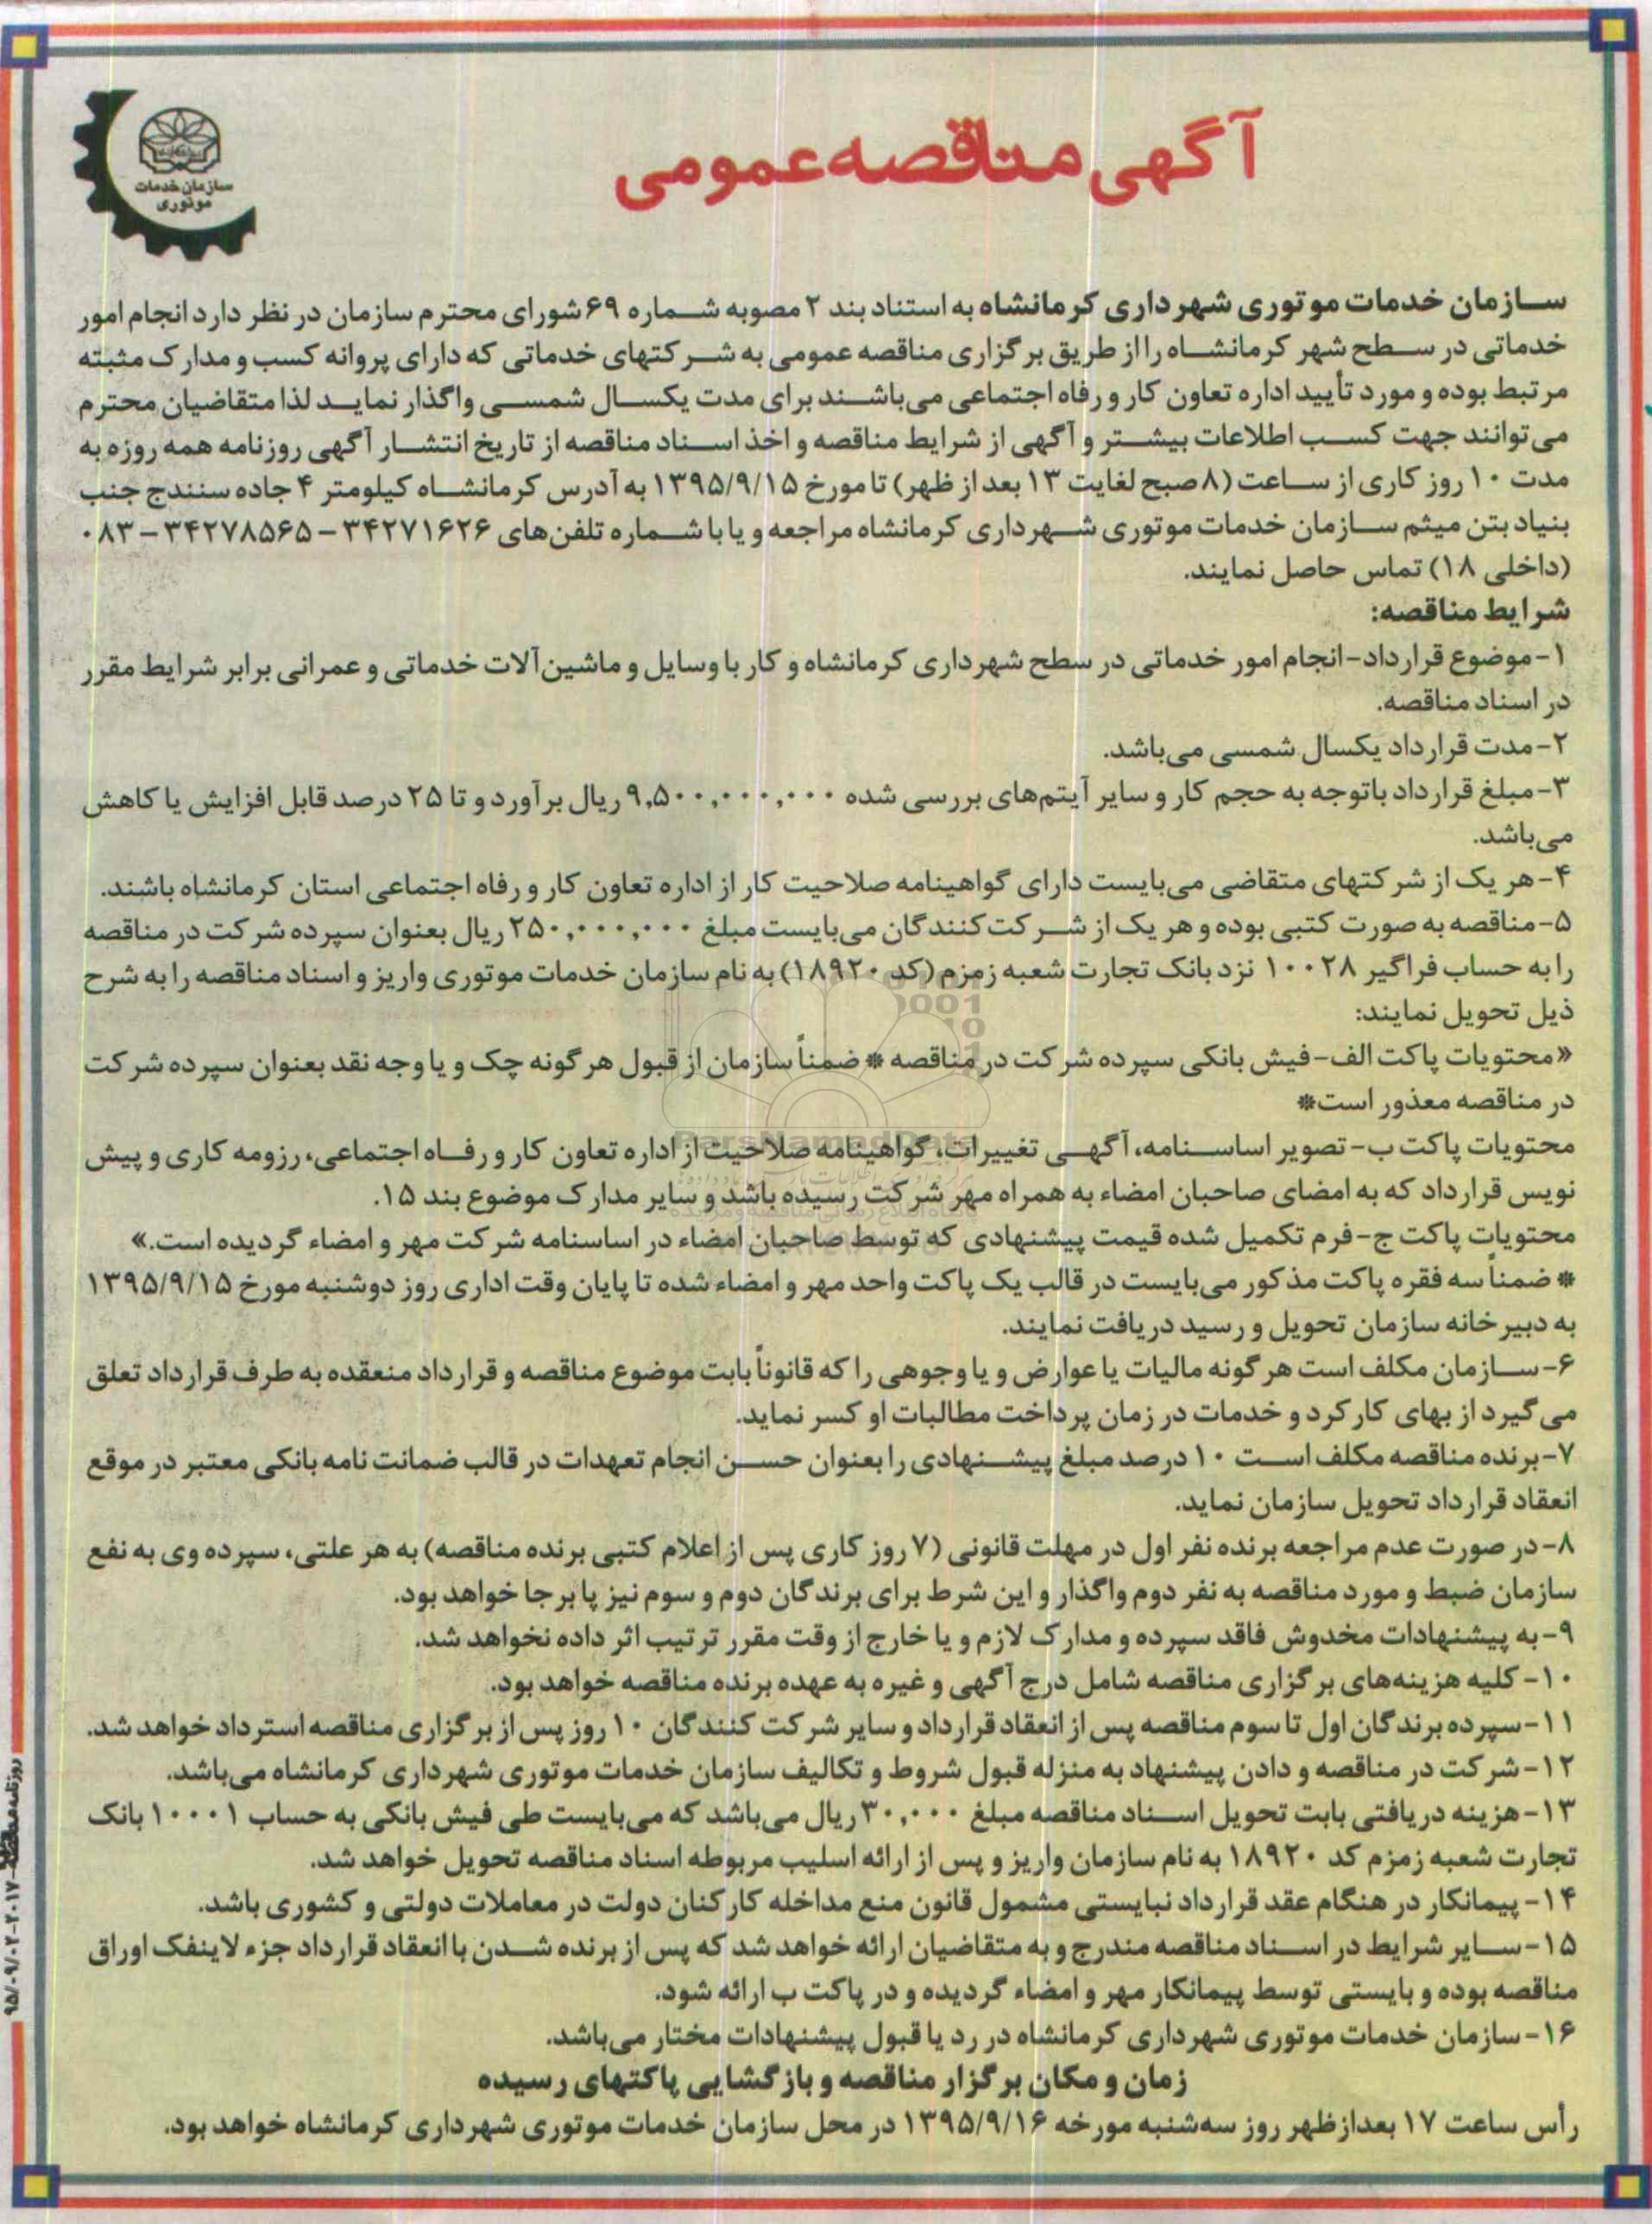 آگهی مناقصه عمومی
سازمان خدمات
موتوری
سازمان خدمات موتوری شهرداری کرمانشاه به استناد بند ۲ مصوبه شماره ۶۹ شورای محترم سازمان در نظر دارد انجام امور
خدماتی در سطح شهر کرمانشاه را از طریق برگزاری مناقصه عمومی به شرکتهای خدماتی که دارای پروانه کسب و مدارک مثبته
مرتبط بوده و مورد تأیید اداره تعاون کار و رفاه اجتماعی می‌باشند برای مدت یکسال شمسی واگذار نماید لذا متقاضیان محترم
می‌توانند جهت کسب اطلاعات بیشتر و آگهی از شرایط مناقصه و اخذ اسناد مناقصه از تاریخ انتشار آگهی روزنامه همه روزه به
مدت ۱۰ روز کاری از ساعت (۸ صبح لغایت ۱۳ بعد از ظهر) تا مورخ ۱۳۹۵/۹/۱۵ به آدرس کرمانشاه کیلومتر ۴ جاده سنندج جنب
بنیاد بتن میثم سازمان خدمات موتوری شهرداری کرمانشاه مراجعه و یا با شماره تلفن‌های ۳۴۲۷۱۶۲۶ – ۳۴۲۷۸۵۶۵ – ۰۸۳
(داخلی ۱۸) تماس حاصل نمایند.
شرایط مناقصه:
۱- موضوع قرارداد- انجام امور خدماتی در سطح شهرداری کرمانشاه و کار با وسایل و ماشین‌آلات خدماتی و عمرانی برابر شرایط مقرر
در اسناد مناقصه.
۲- مدت قرارداد یکسال شمسی می‌باشد.
۳- مبلغ قرارداد باتوجه به حجم کار و سایر آیتم‌های بررسی شده ۹,۵۰۰,۰۰۰,۰۰۰ ریال برآورد و تا ۲۵ درصد قابل افزایش یا کاهش
می‌باشد.
۴- هر یک از شرکتهای متقاضی می‌بایست دارای گواهینامه صلاحیت کار از اداره تعاون کار و رفاه اجتماعی استان کرمانشاه باشند.
۵- مناقصه به صورت کتبی بوده و هر یک از شرکت‌کنندگان می‌بایست مبلغ ۲۵۰,۰۰۰,۰۰۰ ریال بعنوان سپرده شرکت در مناقصه
را به حساب فراگیر ۱۰۰۲۸ نزد بانک تجارت شعبه زمزم (کد ۱۸۹۲۰) به نام سازمان خدمات موتوری واریز و اسناد مناقصه را به شرح
ذیل تحویل نمایند:
«محتویات پاکت الف- فیش بانکی سپرده شرکت در مناقصه * ضمناً سازمان از قبول هرگونه چک و یا وجه نقد بعنوان سپرده شرکت
در مناقصه معذور است*
محتویات پاکت ب- تصویر اساسنامه، آگهی تغییرات، گواهینامه صلاحیت از اداره تعاون کار و رفاه اجتماعی، رزومه کاری و پیش
نویس قرارداد که به امضای صاحبان امضاء به همراه مهر شرکت رسیده باشد و سایر مدارک موضوع بند ۱۵.
محتویات پاکت ج- فرم تکمیل شده قیمت پیشنهادی که توسط صاحبان امضاء در اساسنامه شرکت مهر و امضاء گردیده است.»
* ضمناً سه فقره پاکت مذکور می‌بایست در قالب یک پاکت واحد مهر و امضاء شده تا پایان وقت اداری روز دوشنبه مورخ ۱۳۹۵/۹/۱۵
به دبیرخانه سازمان تحویل و رسید دریافت نمایند.
۶- سازمان مکلف است هرگونه مالیات یا عوارض و یا وجوهی را که قانوناً بابت موضوع مناقصه و قرارداد منعقده به طرف قرارداد تعلق
می‌گیرد از بهای کارکرد و خدمات در زمان پرداخت مطالبات او کسر نماید.
۷- برنده مناقصه مکلف است ۱۰ درصد مبلغ پیشنهادی را بعنوان حسن انجام تعهدات در قالب ضمانت نامه بانکی معتبر در موقع
انعقاد قرارداد تحویل سازمان نماید.
۸- در صورت عدم مراجعه برنده نفر اول در مهلت قانونی (۷ روز کاری پس از اعلام کتبی برنده مناقصه) به هر علتی، سپرده وی به نفع
سازمان ضبط و مورد مناقصه به نفر دوم واگذار و این شرط برای برندگان دوم و سوم نیز پابرجا خواهد بود.
۹- به پیشنهادات مخدوش فاقد سپرده و مدارک لازم و یا خارج از وقت مقرر ترتیب اثر داده نخواهد شد.
۱۰- کلیه هزینه‌های برگزاری مناقصه شامل درج آگهی و غیره به عهده برنده مناقصه خواهد بود.
۱۱- سپرده برندگان اول تا سوم مناقصه پس از انعقاد قرارداد و سایر شرکت کنندگان ۱۰ روز پس از برگزاری مناقصه استرداد خواهد شد.
۱۲- شرکت در مناقصه و دادن پیشنهاد به منزله قبول شروط و تکالیف سازمان خدمات موتوری شهرداری کرمانشاه می‌باشد.
۱۳- هزینه دریافتی بابت تحویل اسناد مناقصه مبلغ ۳۰,۰۰۰ ریال می‌باشد که می‌بایست طی فیش بانکی به حساب ۱۰۰۰۱ بانک
تجارت شعبه زمزم کد ۱۸۹۲۰ به نام سازمان واریز و پس از ارائه اسلیپ مربوطه اسناد مناقصه تحویل خواهد شد.
۱۴- پیمانکار در هنگام عقد قرارداد نبایستی مشمول قانون منع مداخله کارکنان دولت در معاملات دولتی و کشوری باشد.
۱۵- سایر شرایط در اسناد مناقصه مندرج و به متقاضیان ارائه خواهد شد که پس از برنده شدن با انعقاد قرارداد جزء لاینفک اوراق
مناقصه بوده و بایستی توسط پیمانکار مهر و امضاء گردیده و در پاکت ب ارائه شود.
۱۶- سازمان خدمات موتوری شهرداری کرمانشاه در رد یا قبول پیشنهادات مختار می‌باشد.
زمان و مکان برگزار مناقصه و بازگشایی پاکتهای رسیده
رأس ساعت ۱۷ بعدازظهر روز سه‌شنبه مورخه ۱۳۹۵/۹/۱۶ در محل سازمان خدمات موتوری شهرداری کرمانشاه خواهد بود.
ParsNamadData